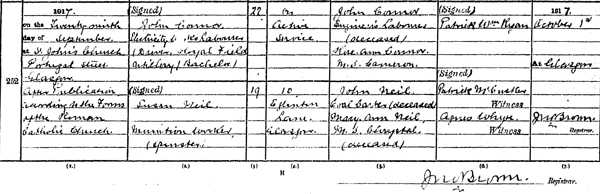 1917. (Signed) 22 On John Connor (Signed) 1917.
on the Twenty ninth John Connor Active Engineer's Labourer Patrick Wm Ryan October 1st
day of September Electricity Labourer Service. (deceased)
at St John's Church (Driver, Royal Field Rose Ann Connor
Portugal Street Artillery) (Bachelor) M.S. Cameron At Glasgow
Glasgow (Signed)
252 After Publication (Signed) 19 10 John Neil Patrick McCusker
according to the Forms Susan Neil Eglinton Coal Carter (deceased) Witness
of the Roman Lane Mary Ann Neil, Agnes Whyte Jno Brown
Catholic Church. Munition Worker, Glasgow M.S. Chrystal Witness Registrar.
(Spinster) (deceased)
(1.) (2.) (3.) (4.) (5.) (6.) (7.)
H
Jno Brown. Registrar.